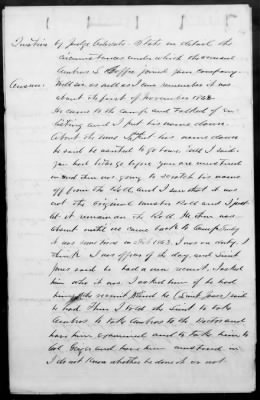 Question by Judge Advocate: State in detail the
circumstances under which the recruit
Ambrose S. joined your company.
Answer: Well sir, as well as I can remember it was
about the first of November 1862.
He came to the camp and talked of en-
listing and I put his name down.
About the time I put his name down
he said he wanted to go home, well I said
you had better go before you are mustered
in and then was going to scratch his name
off from the Roll, and I saw that it was
not the original muster Roll and I just
let it remain on the Roll. He then was
about until we came back to Camp
it was some time in 1863. I was on duty I
think I was officer of the day, and Lieut
Jones said he had a new recruit. I asked
him who it was. I asked him if he had
him the recruit and he (Lieut Jones) said
he had. Then I told the Lieut to take
Ambrose to the doctor and
have him examined and to take him to
Col. and have him mustered in
I do not know whether he done so or not.